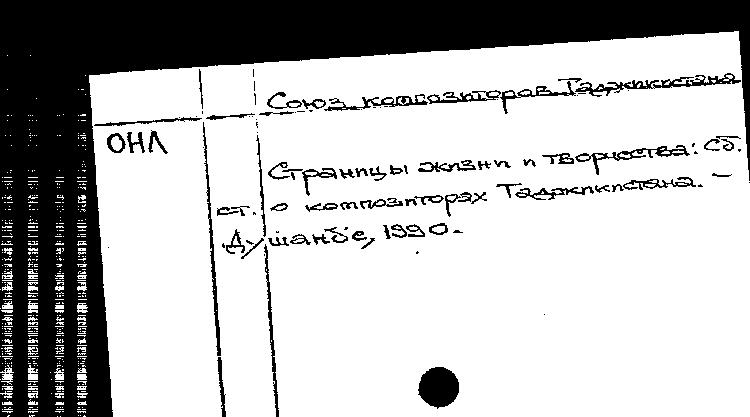 Союз композиторов Таджикистана
ОНЛ
Страницы жизни и творчества: Сб.
ст. о композиторах Таджикистана. –
Душанбе, 1990.